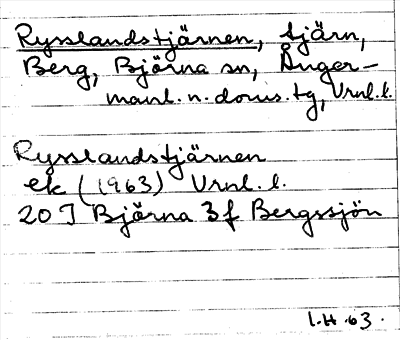 Rysslandstjärnen, tjärn,
Berg, Björna sn, Ånger-
manl. n. doms. tg, Vrnl. l.
Rysslandstjärnen
ek (1963) Vrnl. l.
20 J Björna 3f Bergssjön
I.H. 63.